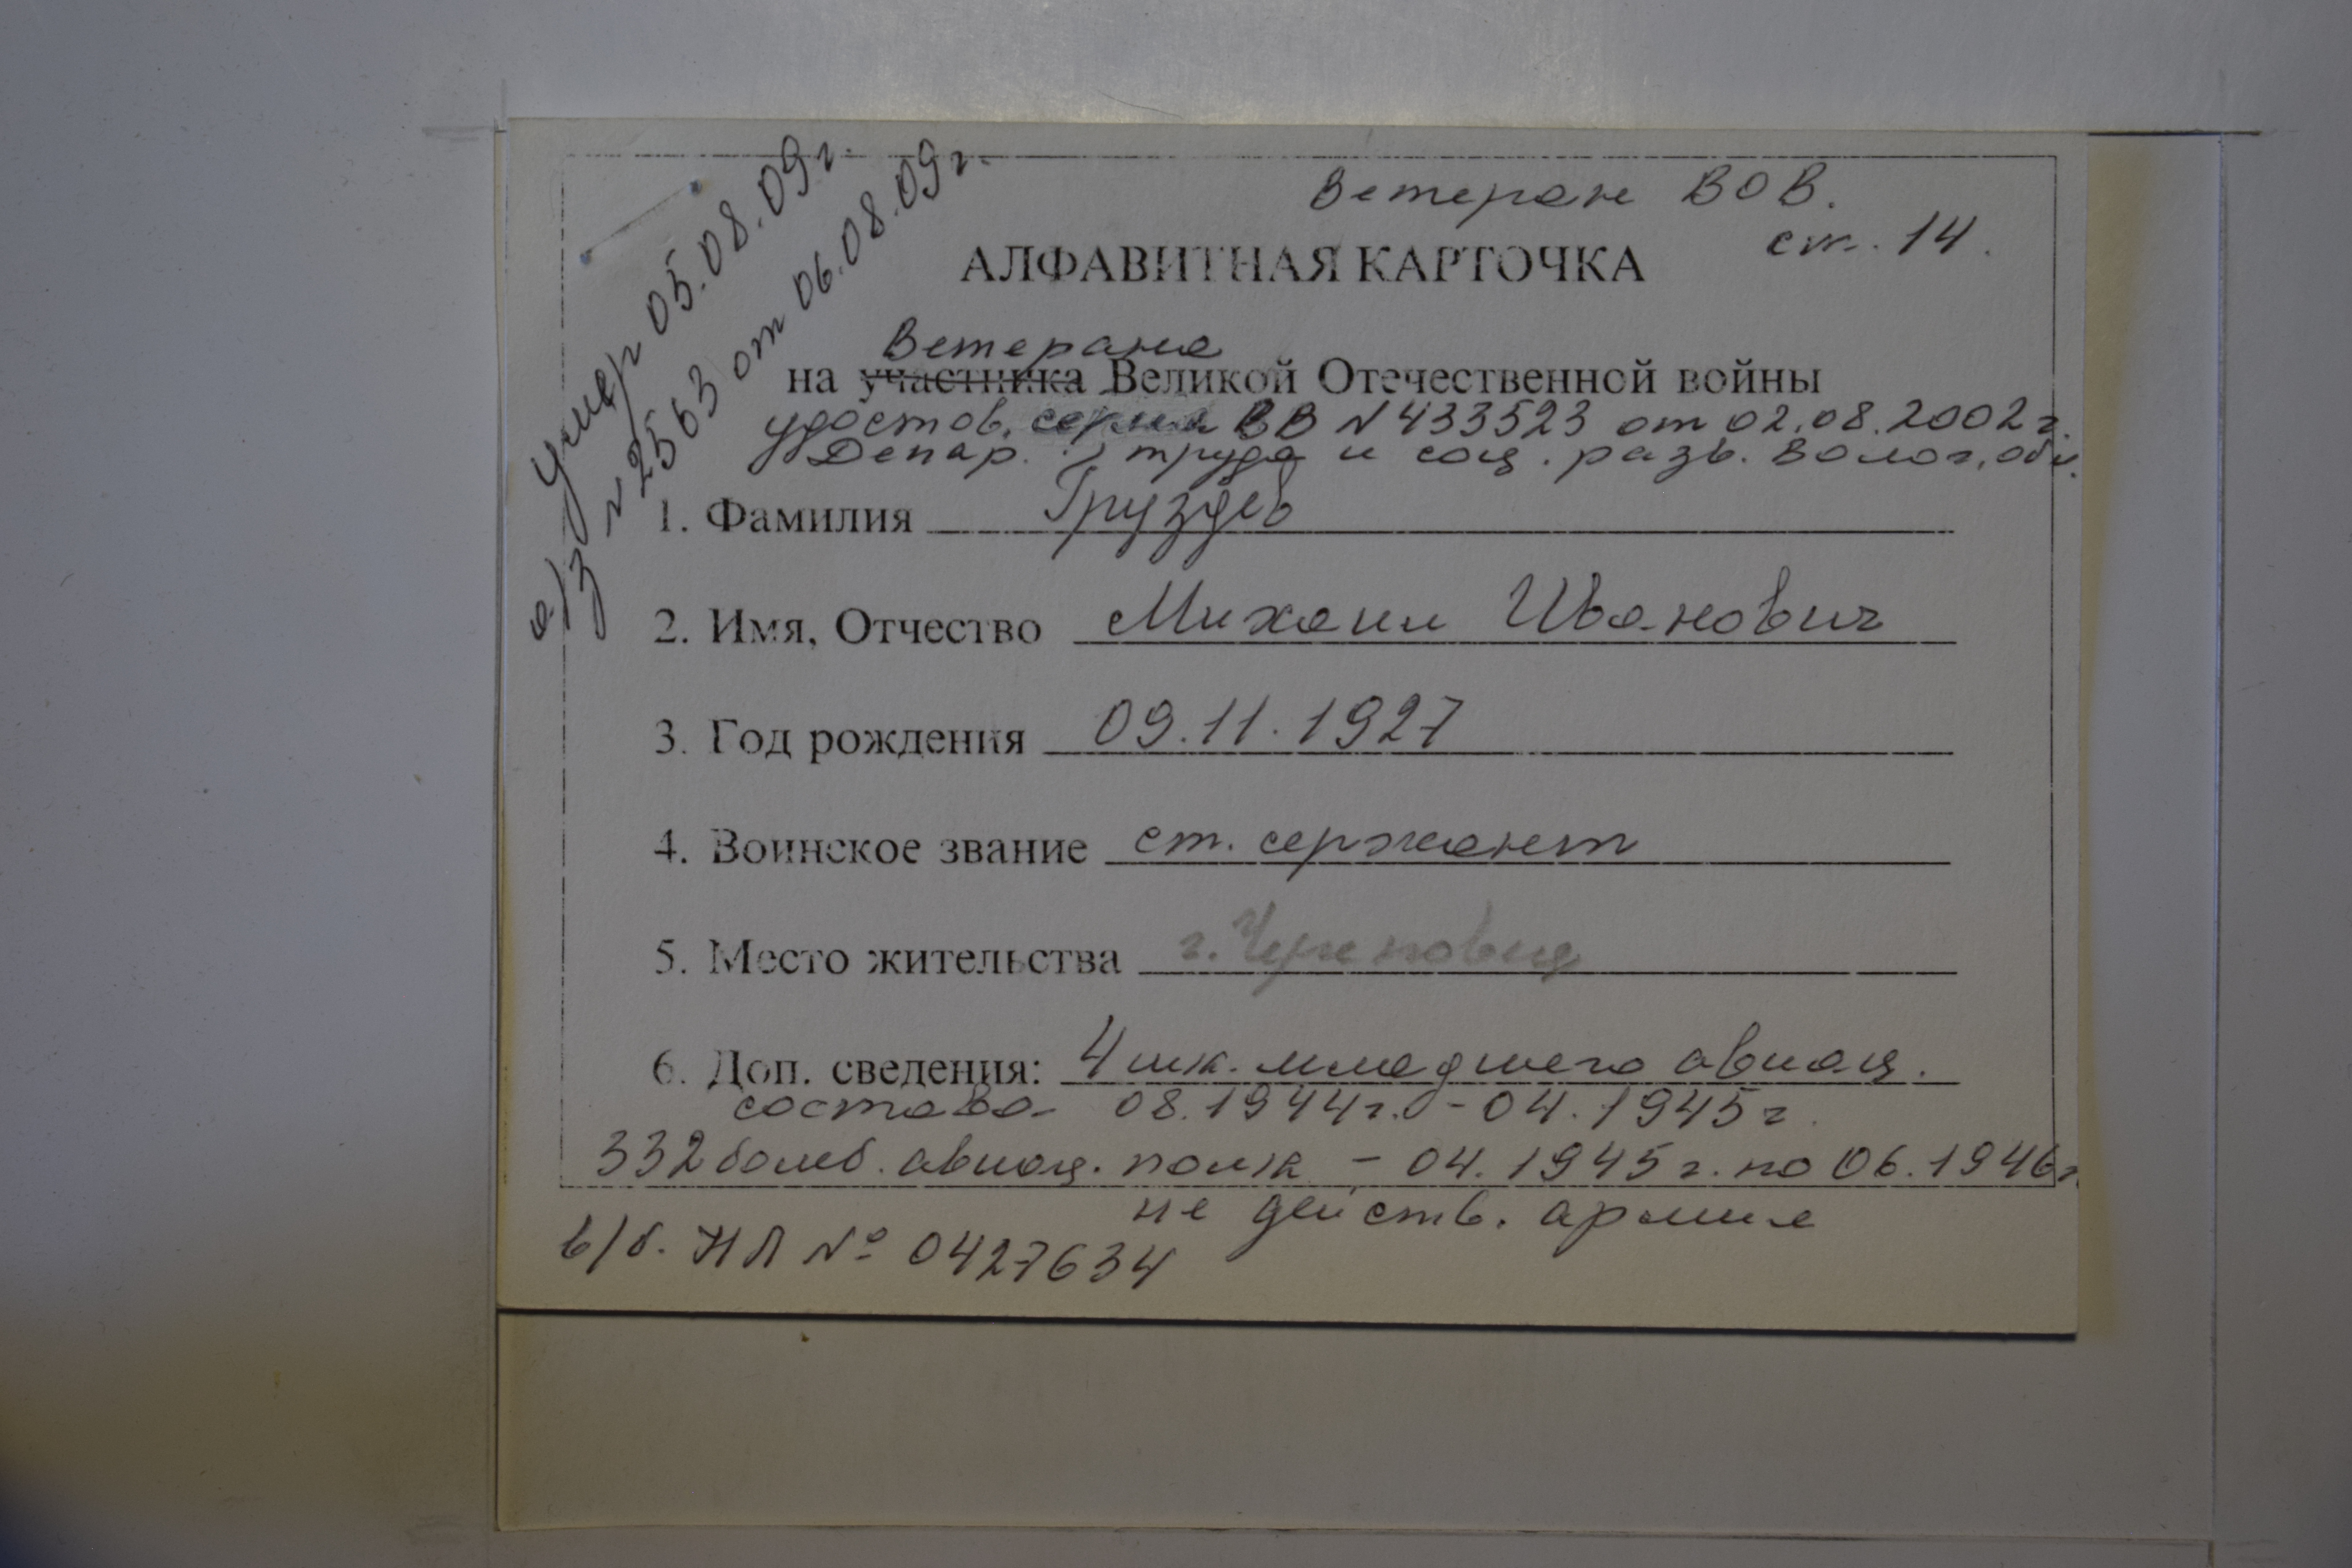 Умер 05.08.09г.
а/з №2563 от 06.08.09г.
Ветеран ВОВ.
ст. 14.
АЛФАВИТНАЯ КАРТОЧКА
Ветерана
на участника Великой Отечественной войны
удостов. серия ВВ №433523 от 02.08.2002г.
Депар. труда и соц. разв. Волог. обл.
1. Фамилия Груздев
2. Имя, Отчество Михаил Иванович
3. Год рождения 09.11.1927
4. Воинское звание ст. сержант
5. Место жительства г. Череповец
6. Доп. сведения: 4 шк. младшего авиац.
состава 08.1944г. - 04.1945г.
332 бомб. авиац. полк - 04.1945г. по 06.1946г
не действ. армия
в/б. НЛ № 0427634